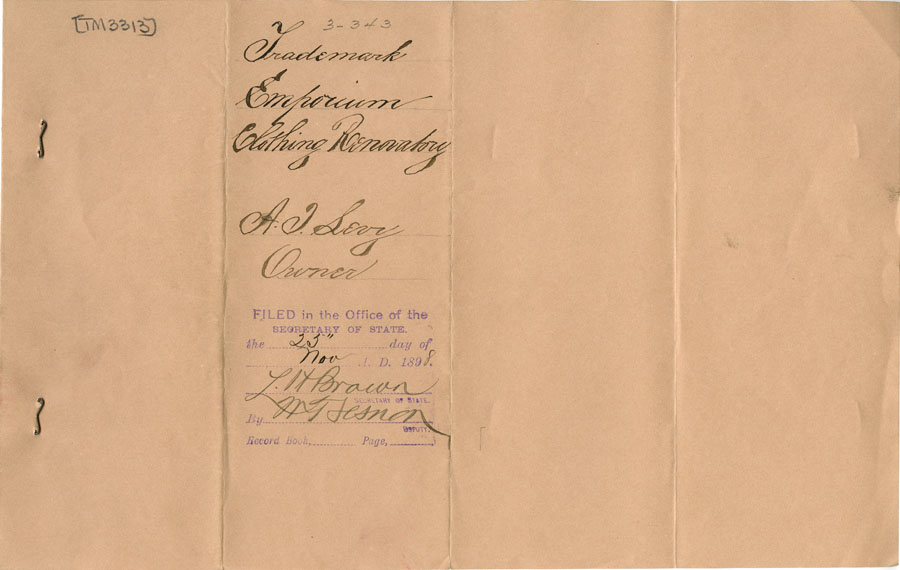 [TM3313]
3-343
Trademark
Emporium
Clothing Renovatory
A. J. Levy
Owner
FILED in the Office of the
SECRETARY OF STATE.
the 25" day of
Nov A. D. 1898.
L. H. Brown
SECRETARY OF STATE.
By
DEPUTY.
Record Book, Page,